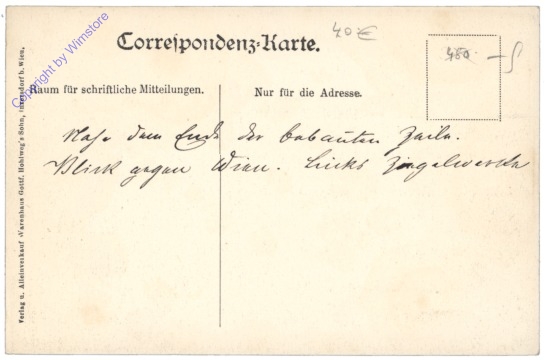 Correspondenz-Karte.
40 €
480.-
Raum für schriftliche Mitteilungen.
Nur für die Adresse.
Nahe dem Ende der bebauten Zeile.
Blick gegen Wien. Links Ziegelwerke
Verlag u. Alleinverkauf Warenhaus Gottf. Hohlweg's Sohn, Inzersdorf b. Wien.
Copyright by Wimstore